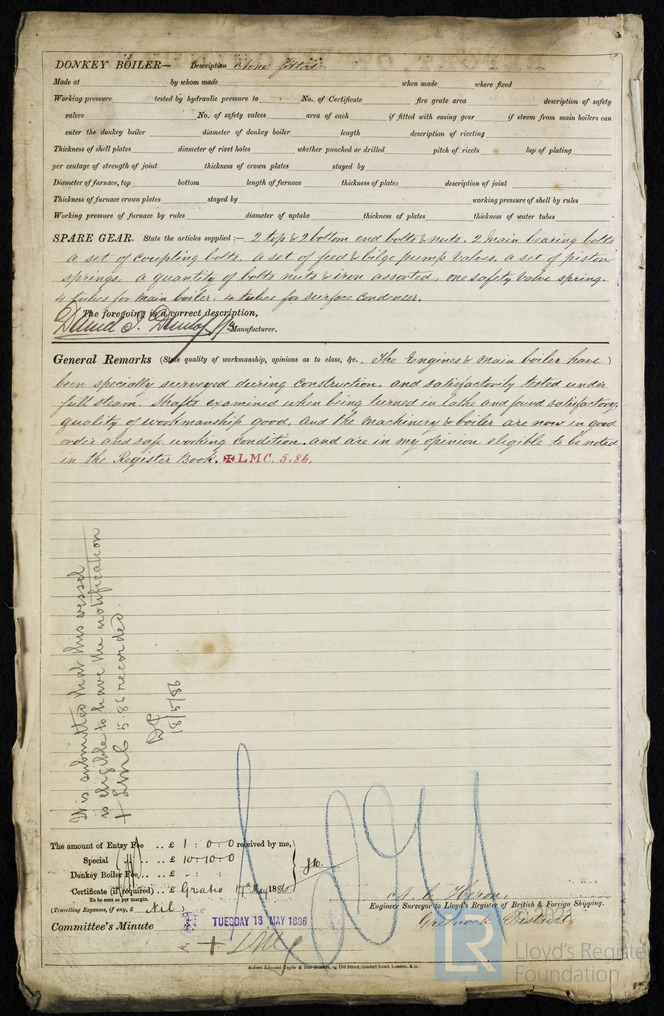 DONKEY BOILER— Description None fitted
Made at by whom made when made where fixed
Working pressure tested by hydraulic pressure to No. of Certificate fire grate area description of safety
valves No. of safety valves area of each if fitted with easing gear if steam from main boilers can
enter the donkey boiler diameter of donkey boiler length description of riveting
Thickness of shell plates diameter of rivet holes whether punched or drilled pitch of rivets lap of plating
per centage of strength of joint thickness of crown plates stayed by
Diameter of furnace, top bottom length of furnace thickness of plates description of joint
Thickness of furnace crown plates stayed by working pressure of shell by rules
Working pressure of furnace by rules diameter of uptake thickness of plates thickness of water tubes
SPARE GEAR. State the articles supplied:— 2 top & 2 bottom end bolts & nuts. 2 Main bearing bolts
a set of coupling bolts. a set of feed & bilge pump valves. a set of piston
springs. a quantity of bolts nuts & iron assorted, one safety valve spring.
4 tubes for main boiler. 4 tubes for surface condenser.
The foregoing is a correct description,
David J. Dunlop Manufacturer.
General Remarks (State quality of workmanship, opinions as to class, &c. The Engines & Main boiler have)
been specially surveyed during construction. and satisfactorily tested under
full steam. Shafts examined when being turned in lathe and found satisfactory.
quality of workmanship good, and the machinery & boiler are now in good
order and safe working condition. and are in my opinion eligible to be noted
in the Register Book. ✠ L.M.C. 5.86.
It is submitted that this vessel
is eligible to have the notification
+ LMC 5.86 recorded.
18/5/86
The amount of Entry Fee .. £ 1 : 0 : 0 received by me,
Special .. £ 10 : 10 : 0
Donkey Boiler Fee .. £ - : :
Certificate (if required) .. £ Gratis 17th May 1886
To be sent as per margin.
(Travelling Expenses, if any, £ Nil)
Engineer Surveyor to Lloyd's Register of British & Foreign Shipping.
Greenock District
Committee's Minute
TUESDAY 18 MAY 1886
+ LMC
Robert Edmund Taylor & Son Printers, 19, Old Street, Goswell Road, London, E.C.
© 2021
LR
Lloyd's Register
Foundation